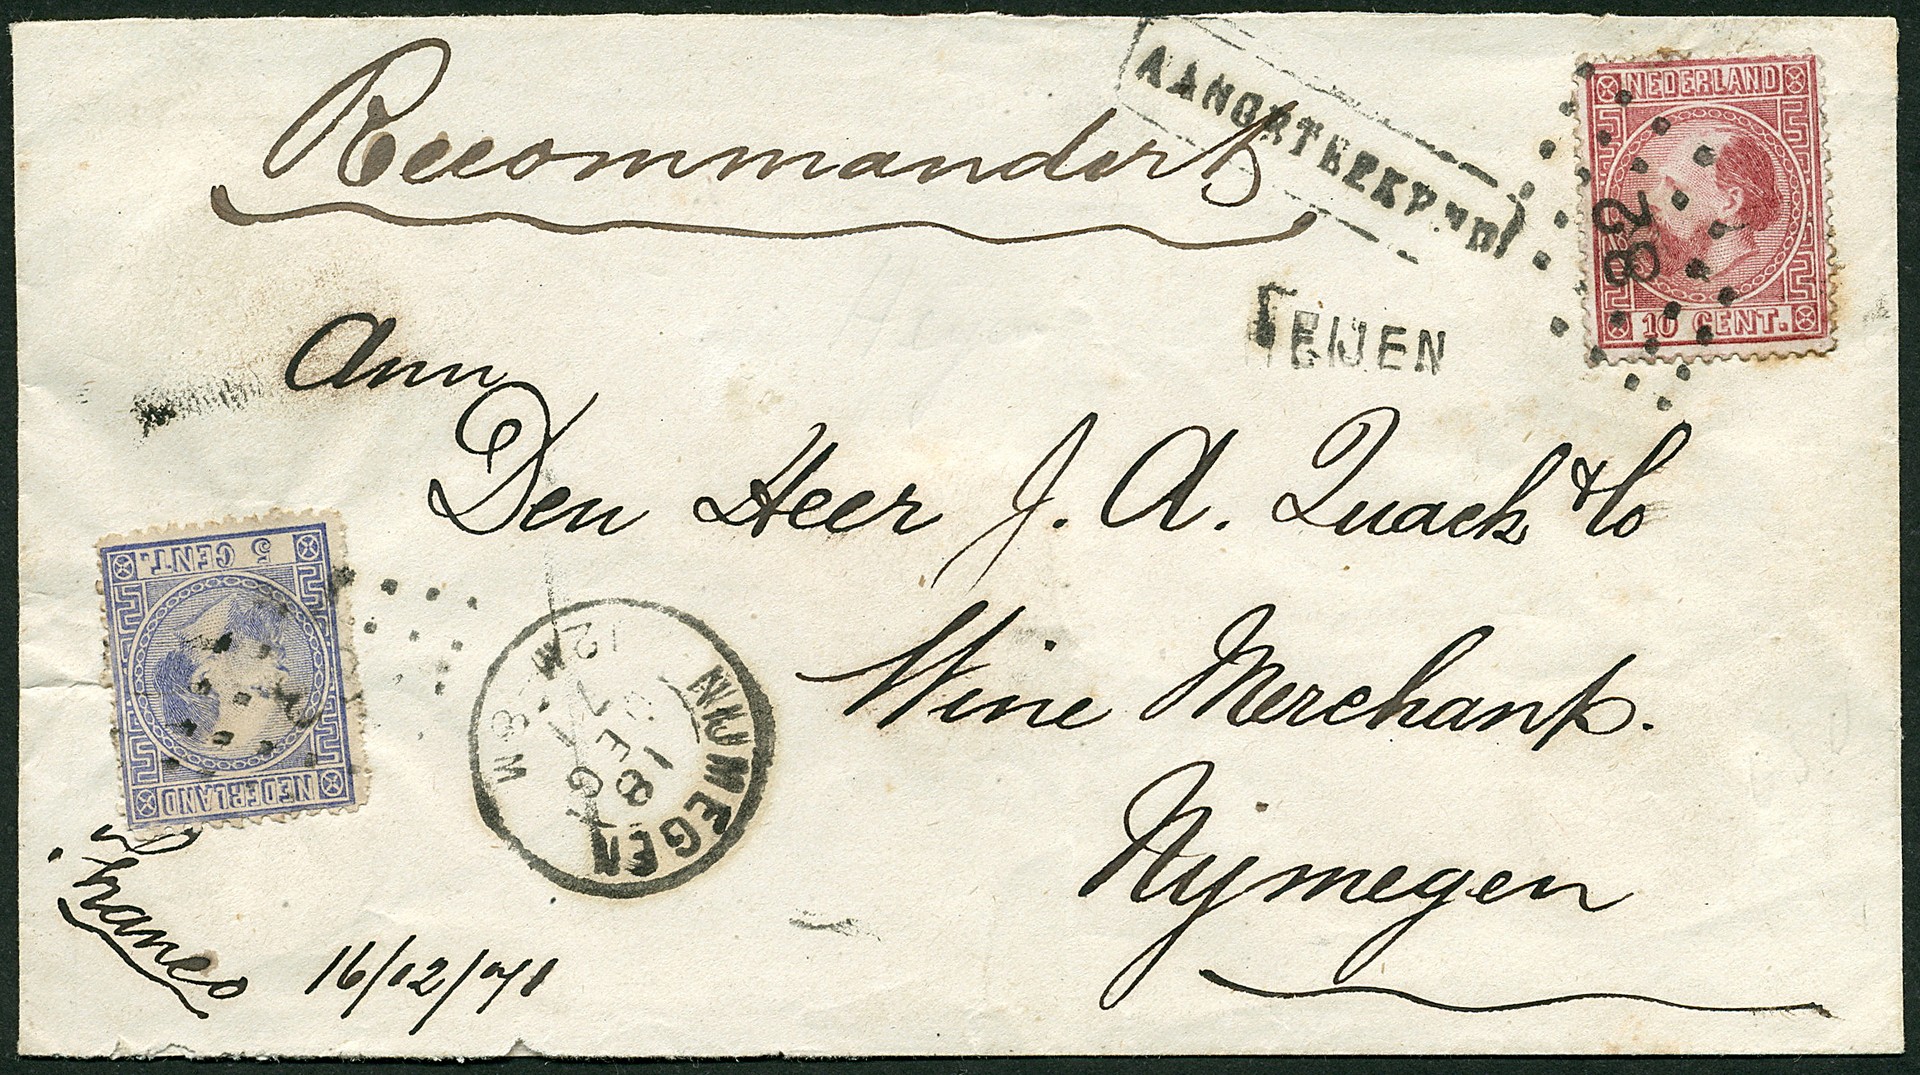 Recommandert
AANGETEEKEND
NEDERLAND
82
10 CENT.
EIJEN
Aan
Den Heer J. A. Quack & Co
Wine Merchant.
Nijmegen
5 CENT.
NEDERLAND
NIJMEGEN
18
DEC
71
8M-12M
Franco
16/12/71